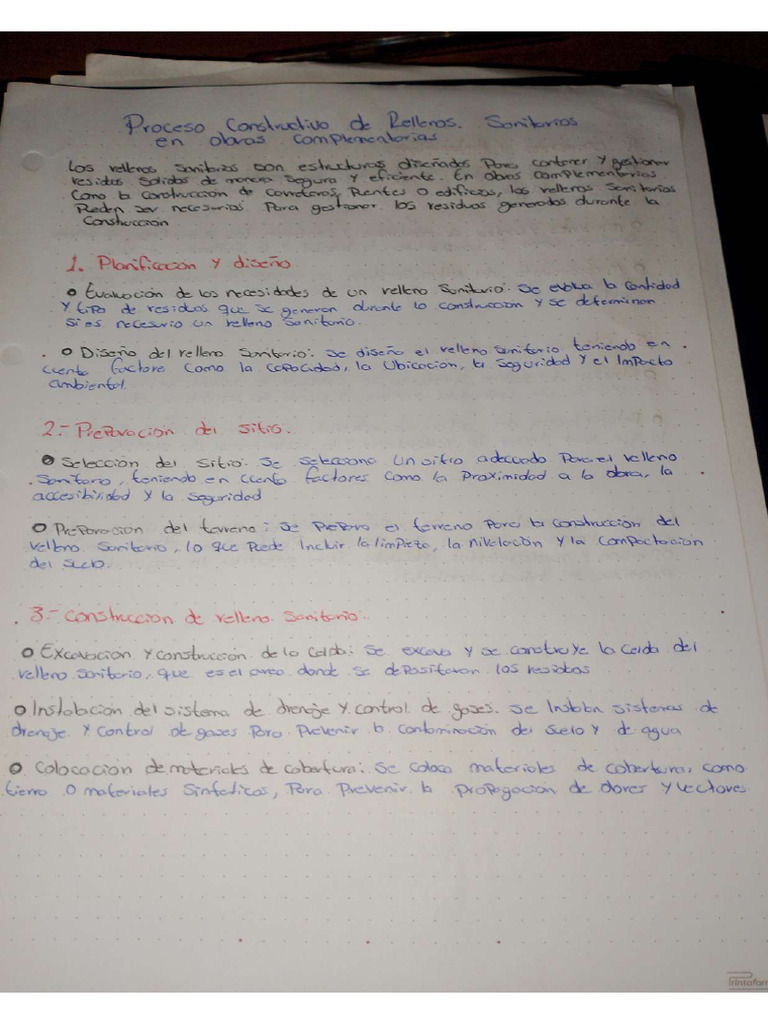 Proceso Constructivo de Rellenos. Sanitarios
en obras complementarias
Los rellenos sanitarios son estructuras diseñadas para contener y gestionar
residos solidos de manera segura y eficiente. En obras complementarias
como la construcción de carreteras, puentes o edificios, los rellenos sanitarios
pueden ser necesarios para gestionar los residuos generados durante la
construccion
1. Planificación y diseño
Evaluación de los necesidades de un relleno sanitario: se evalua la cantidad
y tipo de residuos que se generan durante la construcción y se determinan
si es necesario un relleno sanitario.
Diseño del relleno sanitario: se diseña el relleno sanitario teniendo en
cuenta factores como la capacidad, la ubicación, la seguridad y el impacto
ambiental.
2.- Preparacion del sitio.
Selección del sitio. se selecciona un sitio adecuado para el relleno
sanitario, teniendo en cuenta factores como la proximidad a la obra, la
accesibilidad y la seguridad
Preparacion del terreno: se prepara el terreno para la construcción del
relleno sanitario, lo que puede incluir la limpieza, la nivelación y la compactación
del suelo.
3.- Construccion de relleno sanitario.
Excavación y construcción de la celda: se excava y se construye la celda del
relleno sanitario, que es el area donde se depositaran los residuos
Instalación del sistema de drenaje y control de gases. se instalan sistemas de
drenaje y control de gases para prevenir la contaminación del suelo y de agua
Colocación de materiales de cobertura: se coloca materiales de cobertura, como
tierra o materiales sinteticos, para prevenir la propagación de olores y vectores
Printaform